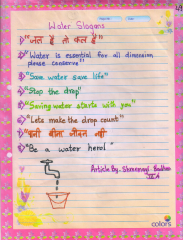 Water Slogans
1) "जल है तो कल है"
2) "Water is essential for all dimension,
please conserve"
3) "Save water save life"
4) "Stop the drop"
5) "Saving water starts with you"
6) "Lets make the drop count"
7) "पानी बिना जीवन नहीं"
8) "Be a water hero!"
Article By:-
IV A
colors